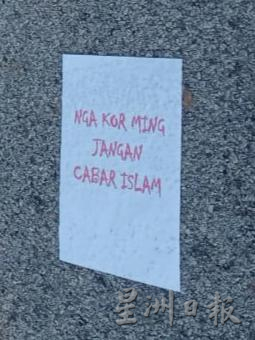 NGA KOR MING
JANGAN
CABAR ISLAM
星洲日报